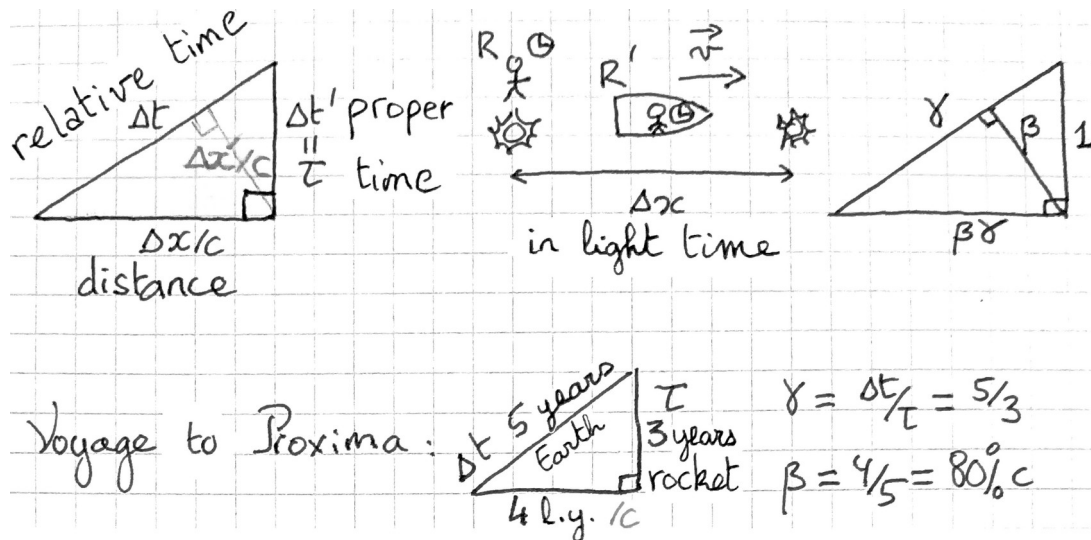 relative time
Δt
Δx'/c
Δt' proper
=
τ time
Δx/c
distance
R
R'
v
Δx
in light time
γ
β
1
βγ
Voyage to Proxima :
Δt 5 years
Earth
τ
3 years
rocket
4 l.y. /c
γ = Δt/τ = 5/3
β = 4/5 = 80% c